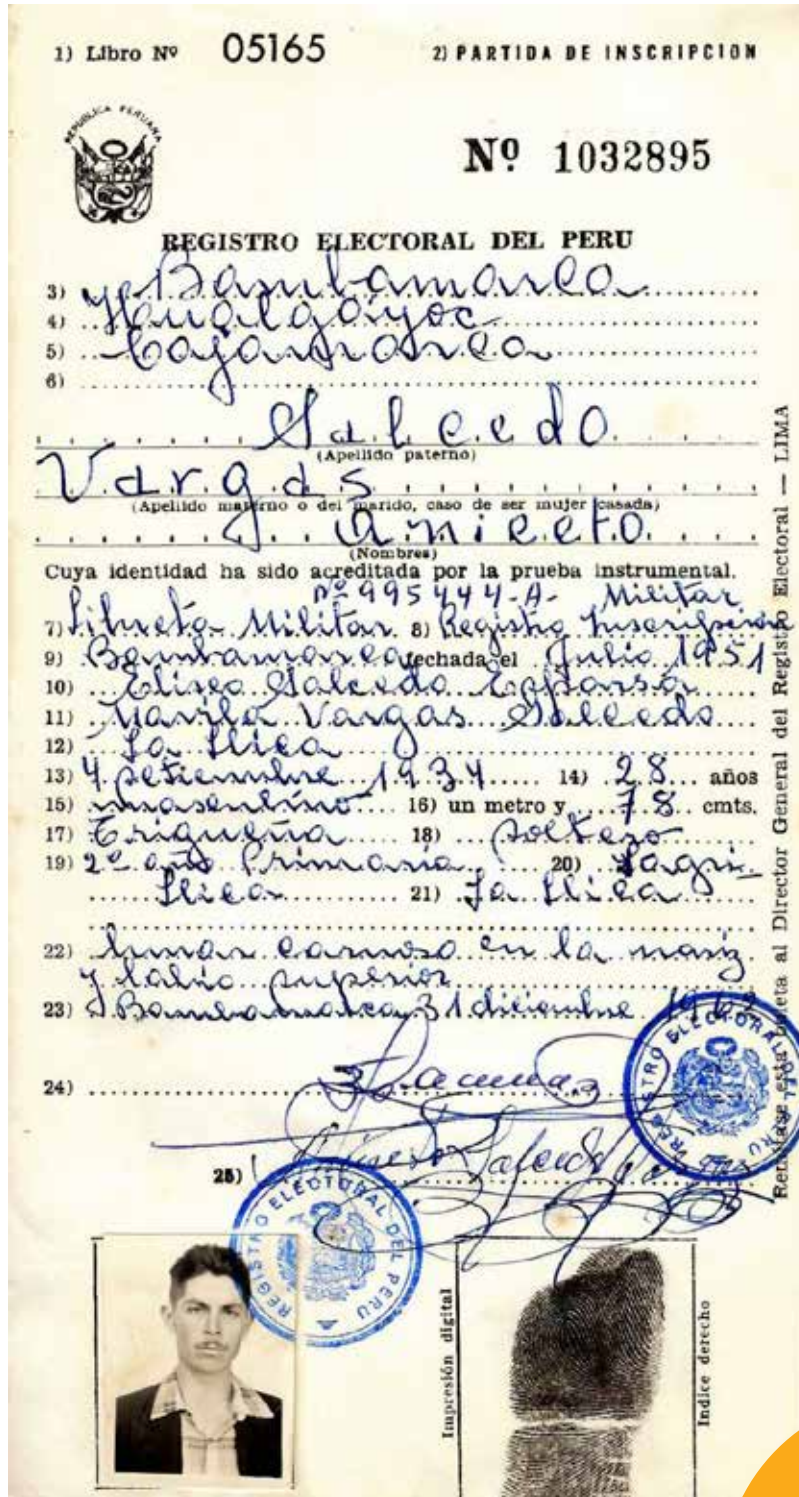 1) Libro Nº 05165 2) PARTIDA DE INSCRIPCION
REPUBLICA PERUANA
Nº 1032895
REGISTRO ELECTORAL DEL PERU
3) Bambamarca
4) Hualgayoc
5) Cajamarca
6)
Salcedo
(Apellido paterno)
Vargas
(Apellido materno o del marido, caso de ser mujer casada)
Aniceto
(Nombres)
Cuya identidad ha sido acreditada por la prueba instrumental.
Nº 995444-A- Militar
7) Libreta Militar 8) Registro Inscripción
9) Bambamarca fechada el Julio 1951
10) Eliseo Salcedo
11) Vargas Salcedo
12) La Llica
13) 4 setiembre 1934 14) 28 años
15) masculino 16) un metro y 78 cmts.
17) Trigueña 18) soltero
19) 2º año Primaria 20) 
Llica 21) La Llica
22) lunar carnoso en la nariz
y labio superior
23) Bambamarca 31 diciembre 1962
24)
25)
REGISTRO ELECTORAL DEL PERU
REGISTRO ELECTORAL DEL PERU
Impresión digital
Indice derecho
esta boleta al Director General del Registro Electoral — LIMA